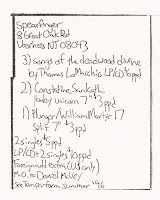 Spearfinger
8 Great Oak Rd
Voorhees NJ 08043
3) songs of the deadwood divine
by Thomas LaMucchio LP/CD $ppd
2) Constantine Sankathi
baby unicorn 7" $3ppd
1) Plunger/William Martyr 17
split 7" $3ppd
2 singles $5ppd
LP/CD + 2 singles $10ppd
Foreign add extra (US only)
M.O. to Daniel Kelley
See him perform summer '96